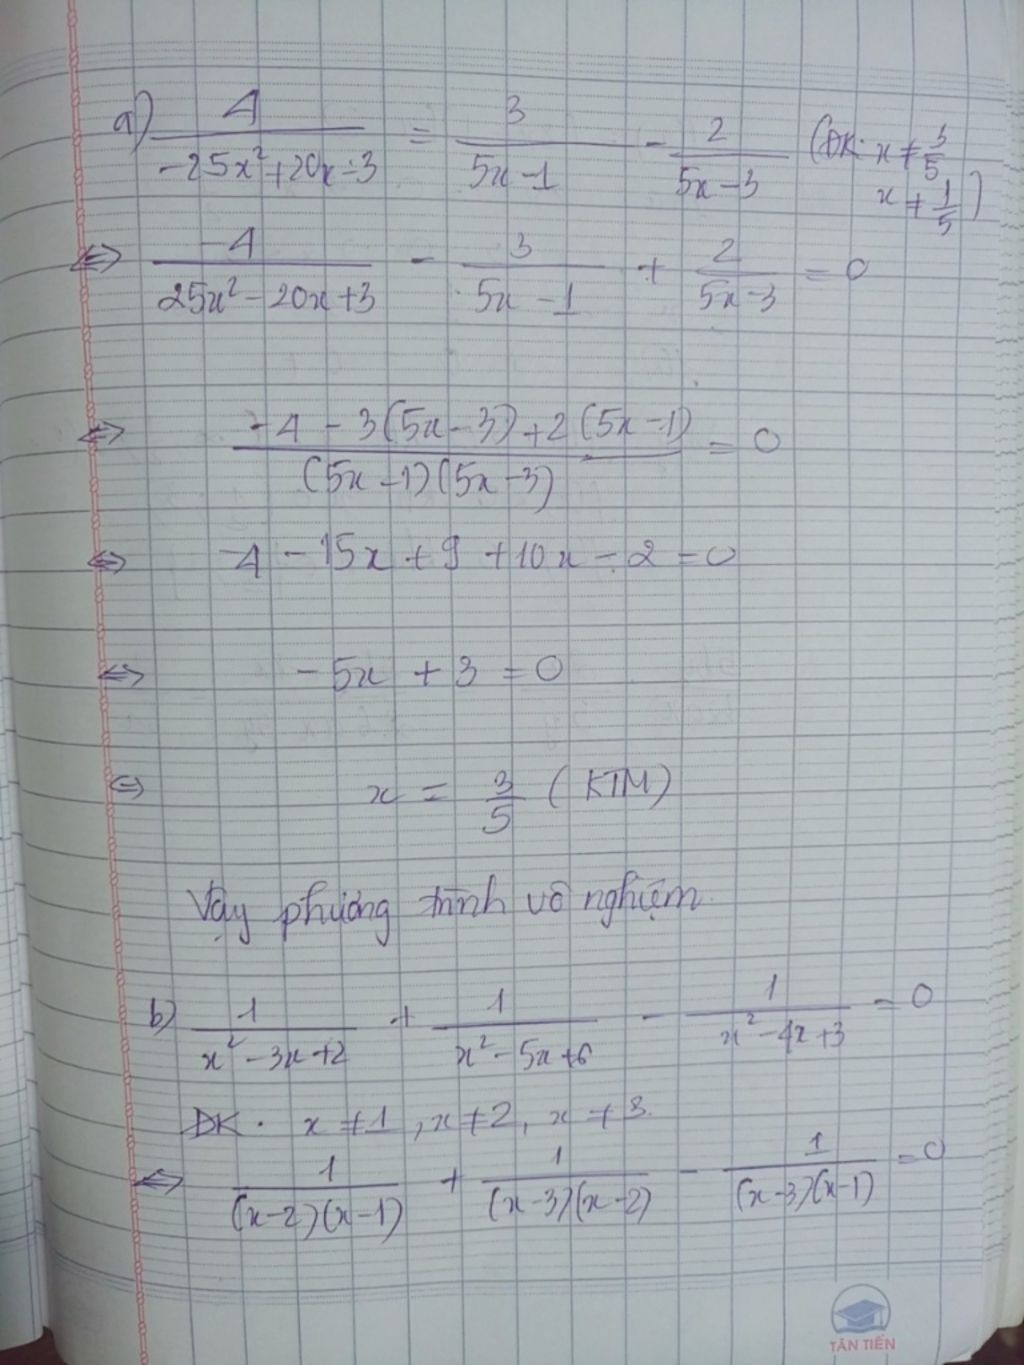 a) 4/(-25x²+20x-3) = 3/(5x-1) - 2/(5x-3) (ĐK: x ≠ 3/5
x ≠ 1/5)
⇔ -4/(25x²-20x+3) - 3/(5x-1) + 2/(5x-3) = 0
⇔ (-4-3(5x-3)+2(5x-1))/((5x-1)(5x-3)) = 0
⇔ -4-15x+9+10x-2=0
⇔ -5x+3=0
⇔ x = 3/5 (KTM)
Vậy phương trình vô nghiệm.
b) 1/(x²-3x+2) + 1/(x²-5x+6) - 1/(x²-4x+3) = 0
ĐK. x ≠ 1, x ≠ 2, x ≠ 3.
⇔ 1/((x-2)(x-1)) + 1/((x-3)(x-2)) - 1/((x-3)(x-1)) = 0
TÂN TIẾN